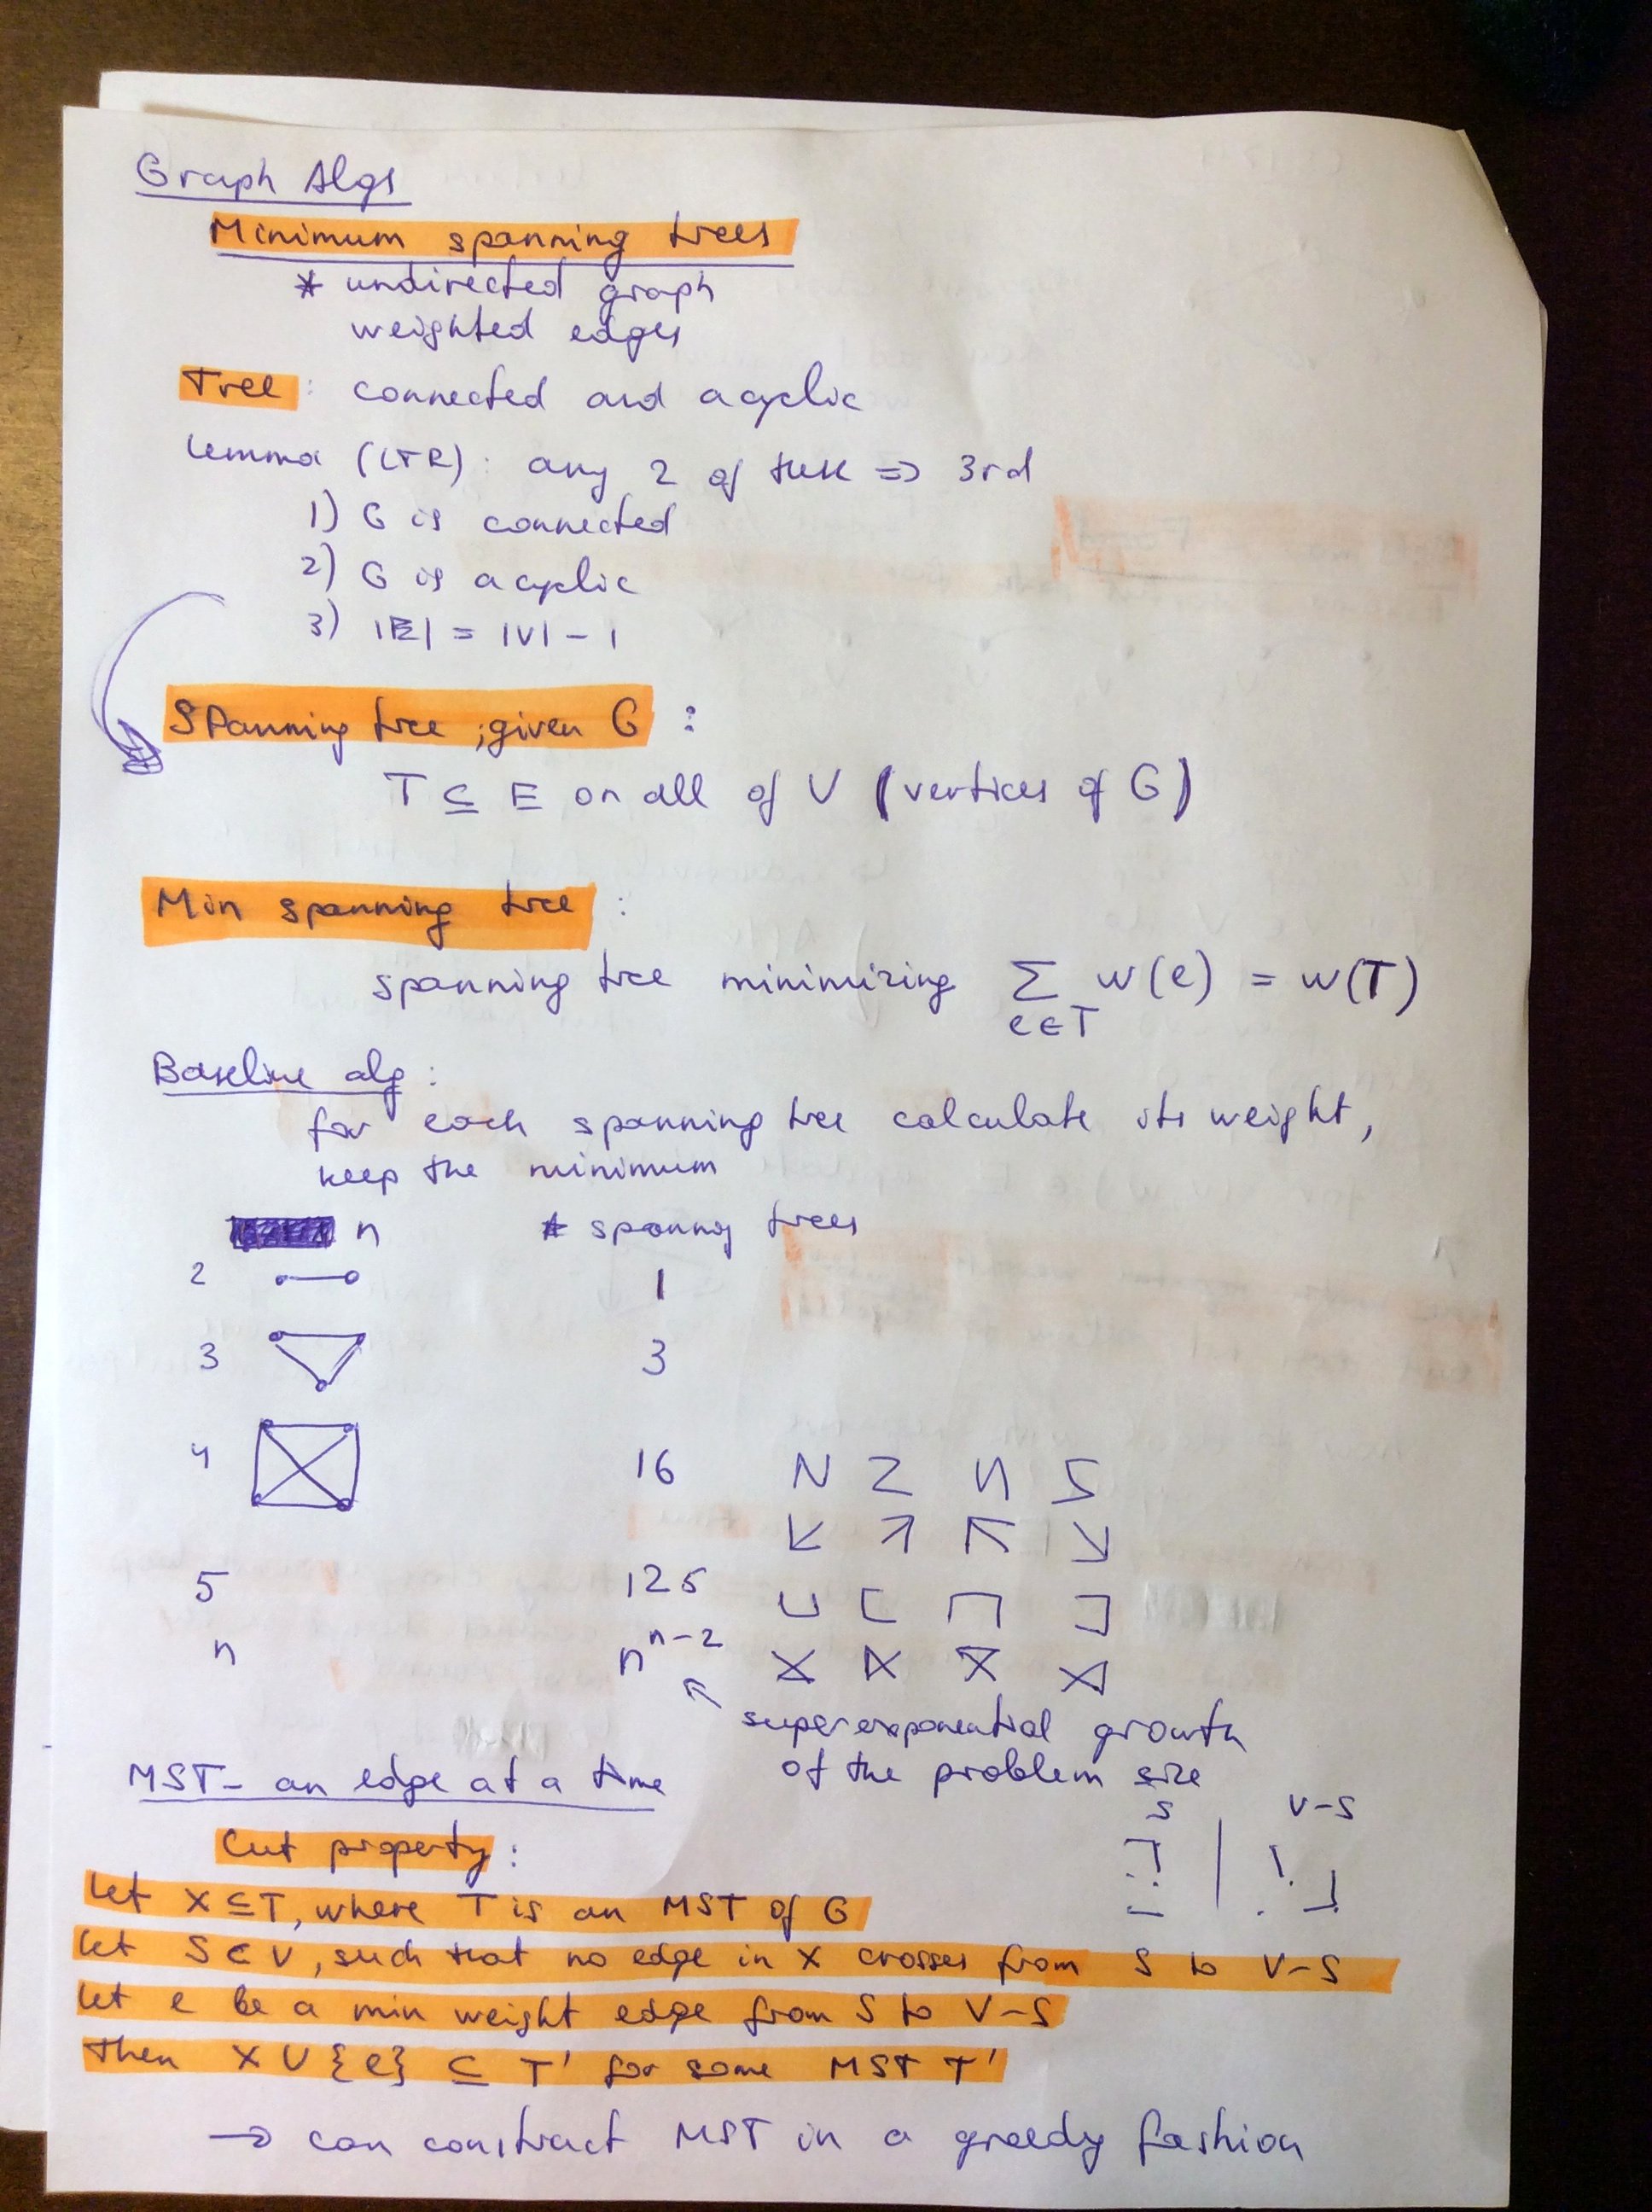 Graph Algs
Minimum spanning trees
* undirected graph
weighted edges
Tree : connected and acyclic
Lemma (LTR) : any 2 of these => 3rd
1) G is connected
2) G is acyclic
3) |E| = |V| - 1
Spanning tree ; given G :
T ⊆ E on all of V (vertices of G)
Min spanning tree :
spanning tree minimizing Σ w(e) = w(T)
e∈T
Baseline alg :
for each spanning tree calculate its weight,
keep the minimum
n # spanning trees
2 1
3 3
4 16
5 125
n n^{n-2}
superexponential growth
of the problem size
MST - an edge at a time
S V-S
Cut property :
Let X ⊆ T, where T is an MST of G
Let S ⊂ V, such that no edge in X crosses from S to V-S
Let e be a min weight edge from S to V-S
Then X ∪ {e} ⊆ T' for some MST T'
→ can construct MST in a greedy fashion